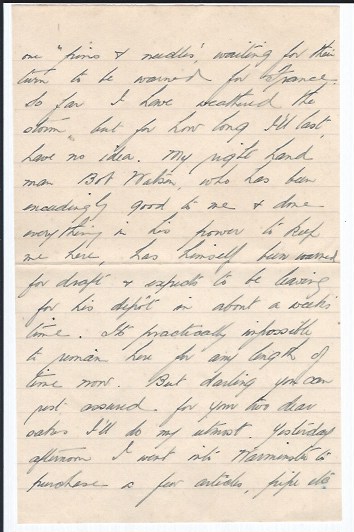 on "pins & needles", waiting for their
turn to be warned for France.
So far I have weathered the
storm, but for how long I'll last,
have no idea. My right hand
man Bob Watson, who has been
exceedingly good to me & done
everything in his power to keep
me here, has himself been warned
for draft & expects to be leaving
for his depôt in about a week's
time. It's practically impossible
to remain here for any length of
time now. But darling you can
rest assured. for you two dear
sakes I'll do my utmost. Yesterday
afternoon I went into Warminster to
purchase a few articles, pipe etc.